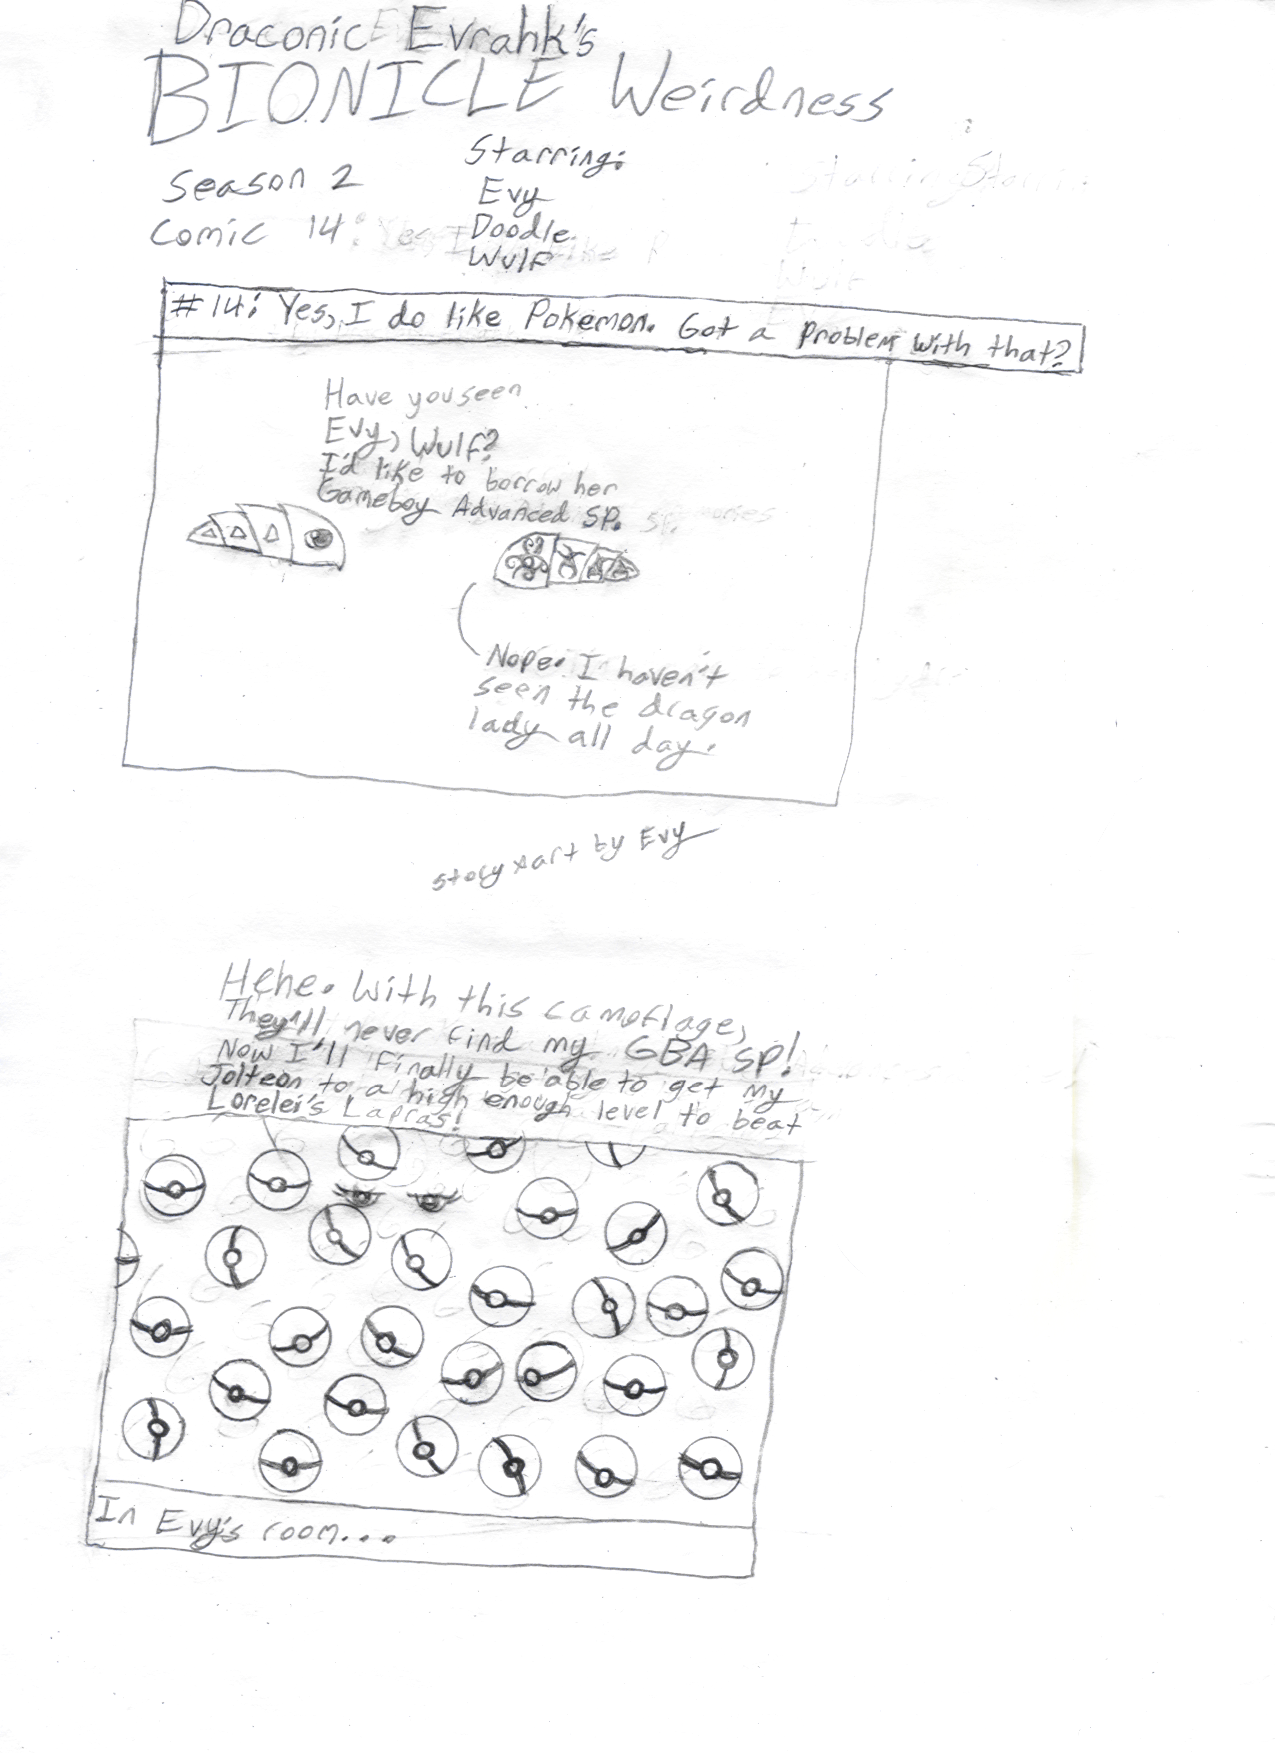 Draconic Evrahk's
BIONICLE Weirdness
Season 2
Comic 14:
Starring:
Evy
Doodle
Wulf
#14: Yes, I do like Pokemon. Got a problem with that?
Have you seen
Evy, Wulf?
I'd like to borrow her
Gameboy Advanced SP.
Nope. I haven't
seen the dragon
lady all day.
story & art by Evy
Hehe. With this camoflage,
They'll never find my GBA SP!
Now I'll finally be able to get my
Jolteon to a high enough level to beat
Lorelei's Lapras!
In Evy's room...